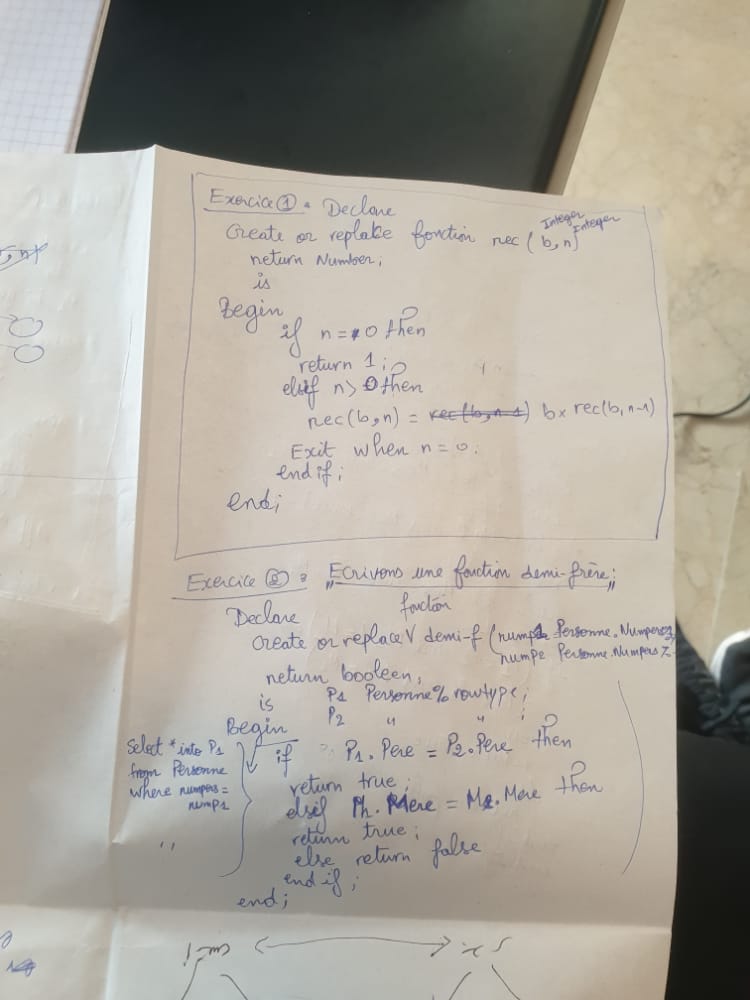 Exercice ① : Declare
Create or replace fonction rec (b, n)
Integer Integer
return Number ;
is
Begin
if n = 0 then
return 1 ;
elsif n > 0 then
rec(b,n) = rec(b,n-1) b x rec(b,n-1)
Exit when n = 0 ;
end if ;
end ;
Exercice ② : "Ecrivons une fonction demi-frère ;
Declare
Create or replace fonction demi-f (nump1 Personne.Numpers%
nump2 Personne.Numpers%
return booleen ;
is P1 Personne%rowtype ;
P2 " " ;
Begin
Select * into P1
from Personne
where numpers =
nump1
"
if P1.Pere = P2.Pere then
return true ;
elsif .Mere = .Mere then
return true ;
else return false
end if ;
end ;